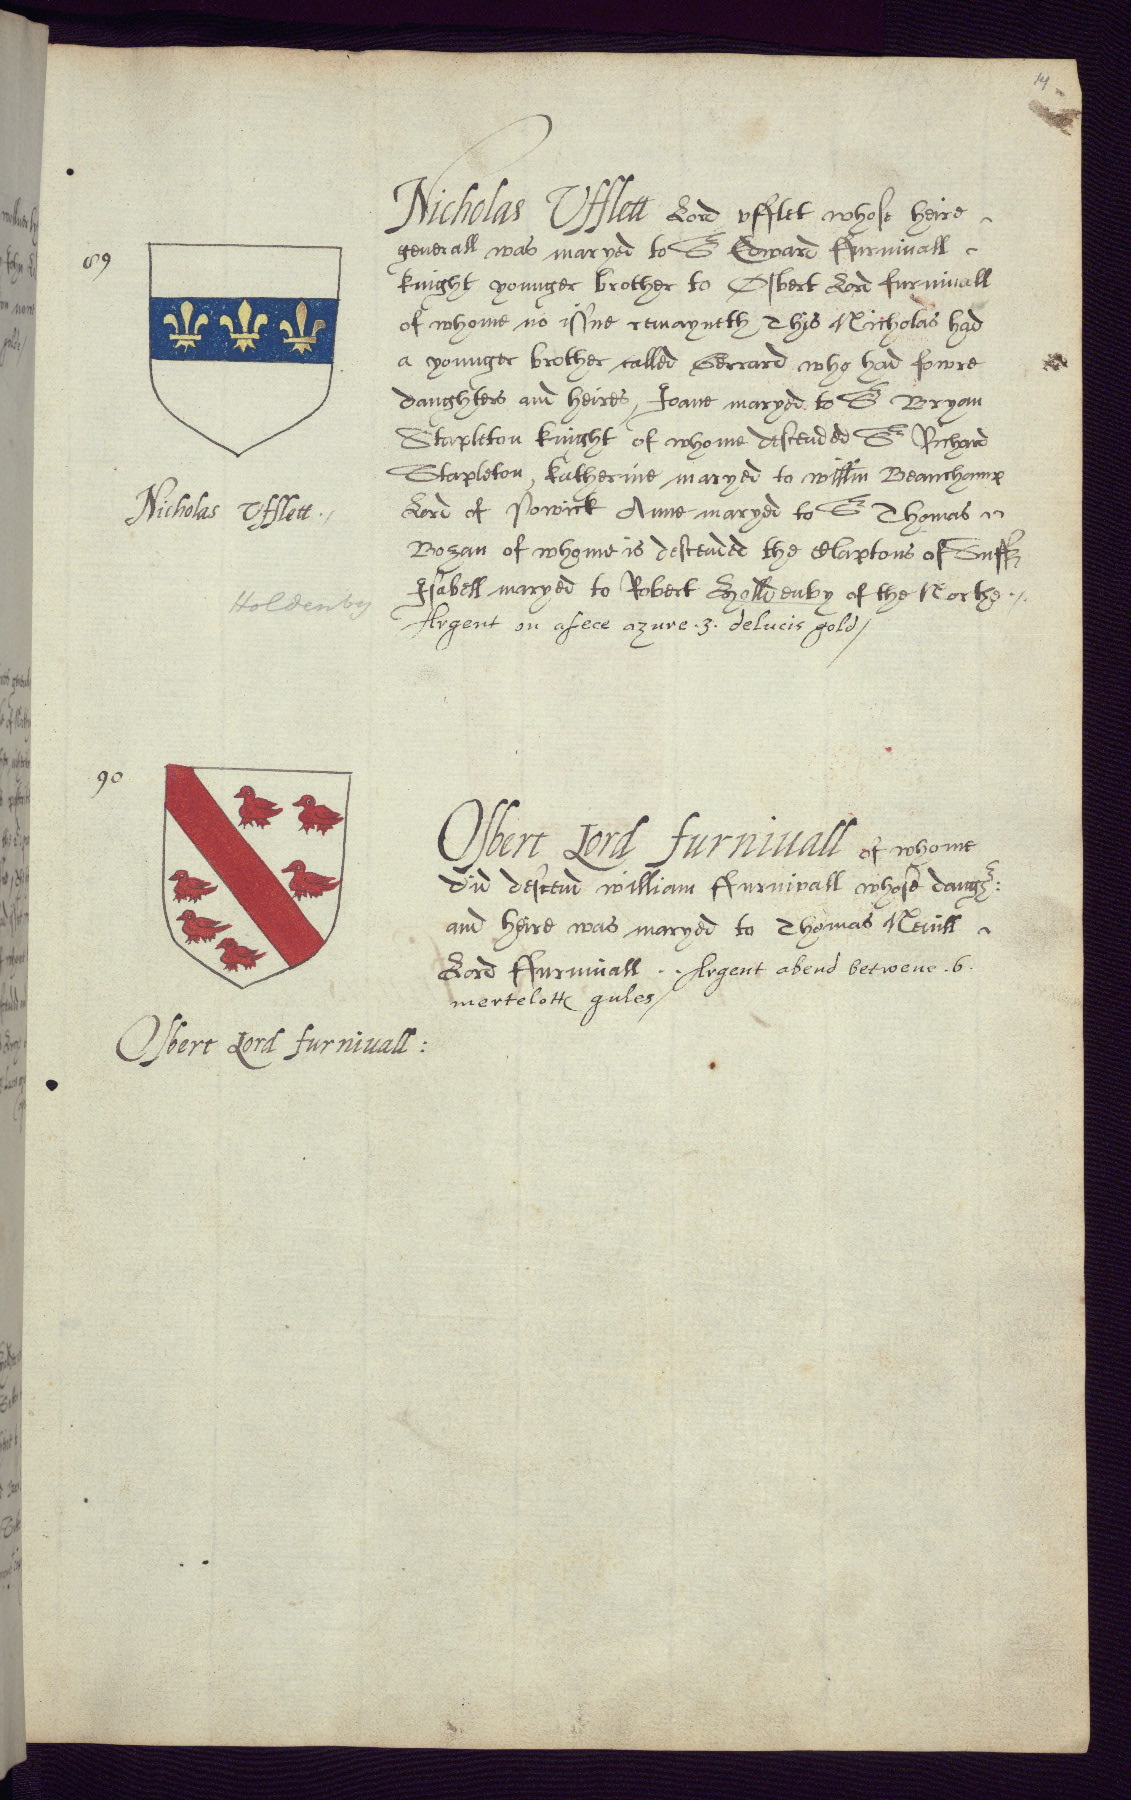 14
89
Nicholas Ufflett Lord vfflet whose heire
generall was maryed to Sr Edward ffurnivall
knight younger brother to Osbert Lord furnivall
of whome no issue remayneth, This Nicholas had
a younger brother called Gerrard who had fowre
daughters and heires, Joane maryed to Sr Bryan
Stapleton knight of whome descended Sr Richard
Stapleton, Katherine maryed to willm Beauchamp
Lord of Powick Anne maryed to Sr Thomas
Bozan of whome is descended the Claxtons of Suff
Isabell maryed to Robert Holldenby of the Northe
Argent on a fece azure .3. delucis gold/
Nicholas Ufflett
Holdenby
90
Osbert Lord furniuall of whome
did descend william ffurnivall whose
and heire was maryed to Thomas Nevill
Lord ffurnivall . . Argent a bend betwene .6.
mertelott gules/
Osbert Lord furniuall :